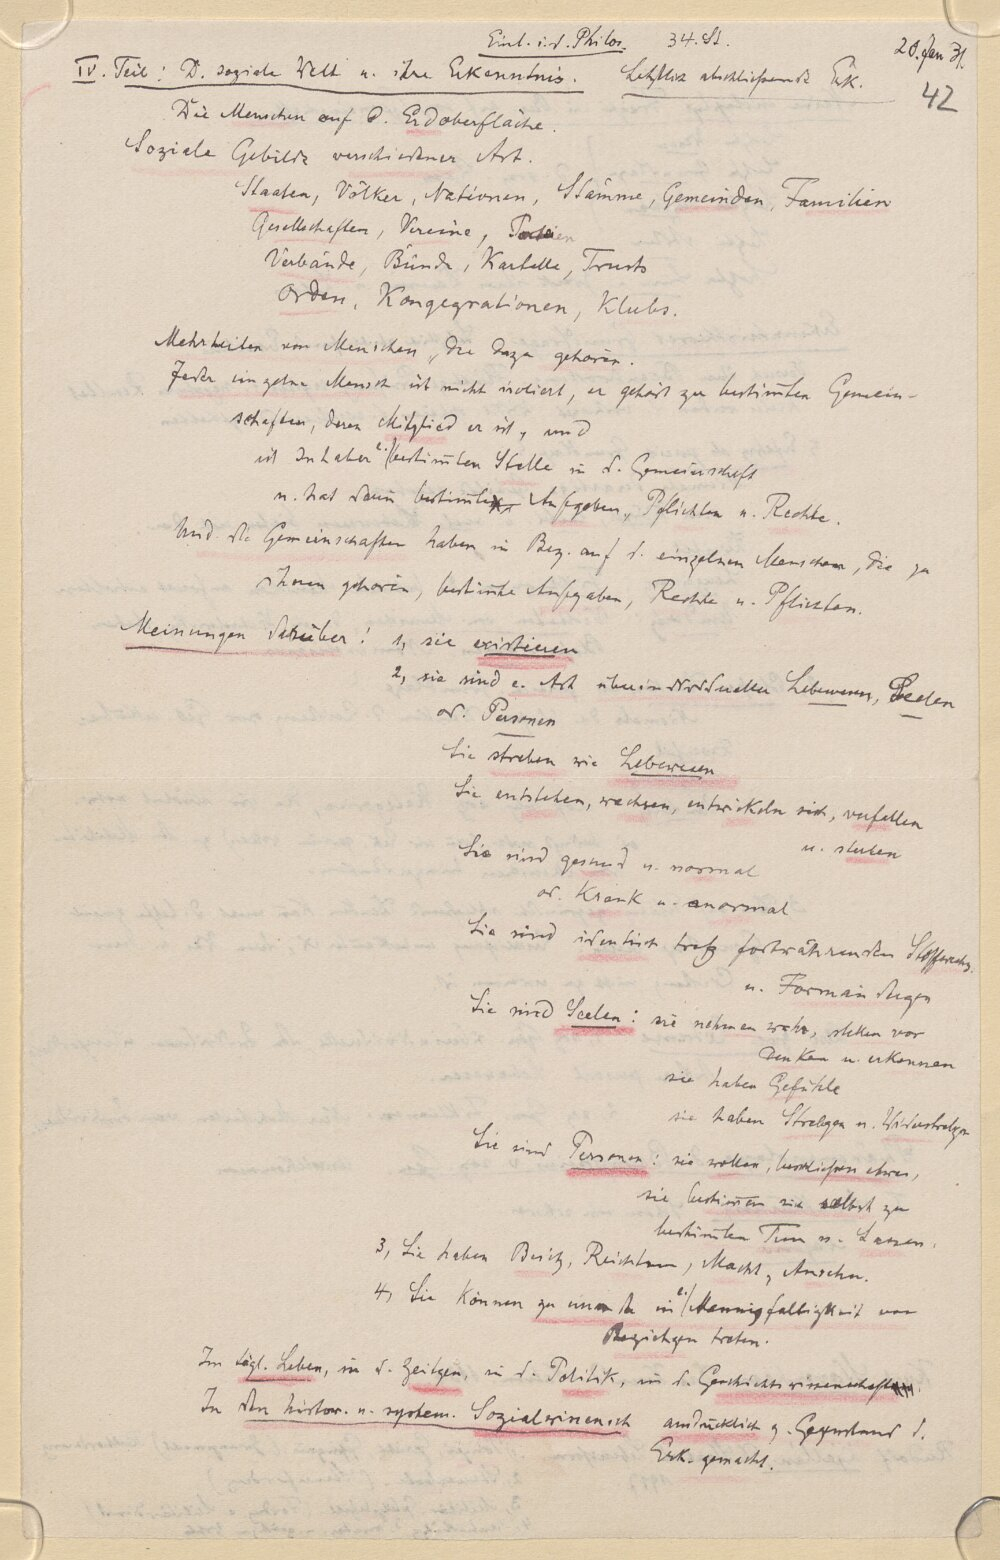 Einl. i. d. Philos. 34. St. 20. Jan 31.
42
IV. Teil: D. soziale Welt u. ihre Erkenntnis. Letztlich abschließende Erk.
Die Menschen auf d. Erdoberfläche.
Soziale Gebilde verschiedener Art.
Staaten, Völker, Nationen, Stämme, Gemeinden, Familien
Gesellschaften, Vereine, Parteien
Verbände, Bünde, Kartelle, Trusts
Orden, Kongegrationen, Klubs.
Mehrheiten von Menschen, die dazu gehören.
Jeder einzelne Mensch ist nicht isoliert, er gehört zu bestimten Gemein-
schaften, deren Mitglied er ist, und
ist Inhaber e. bestimten Stelle in d. Gemeinschaft
u. hat darin bestimte Aufgaben, Pflichten u. Rechte.
Und die Gemeinschaften haben in Bez. auf d. einzelnen Menschen, die zu
ihnen gehören, bestimte Aufgaben, Rechte u. Pflichten.
Meinungen darüber: 1, sie existieren
2, sie sind e. Art überindividueller Lebewesen, Seelen
od. Personen
Sie streben wie Lebewesen
Sie entstehen, wachsen, entwickeln sich, verfallen
u. sterben
Sie sind gesund u. normal
od. krank u. anormal
Sie sind identisch trotz fortwährenden Stoffwechs.
u. Formändgen
Sie sind Seelen: sie nehmen wahr, stellen vor
denken u. erkennen
sie haben Gefühle
sie haben Strebgen u. Widerstrebgen
Sie sind Personen: sie wollen, beschließen etwas,
sie bestimen sich selbst zu
bestimten Tun u. Lassen.
3, Sie haben Besitz, Reichtum, Macht, Ansehn.
4, Sie können zu einander in e. Mannigfaltigkeit von
Beziehgen treten.
Im tägl. Leben, in d. Zeitgen, in d. Politik, in d. Geschichtswissenschaft.
In den histor. u. system. Sozialwissensch ausdrücklich z. Gegenstand d.
Erk. gemacht.